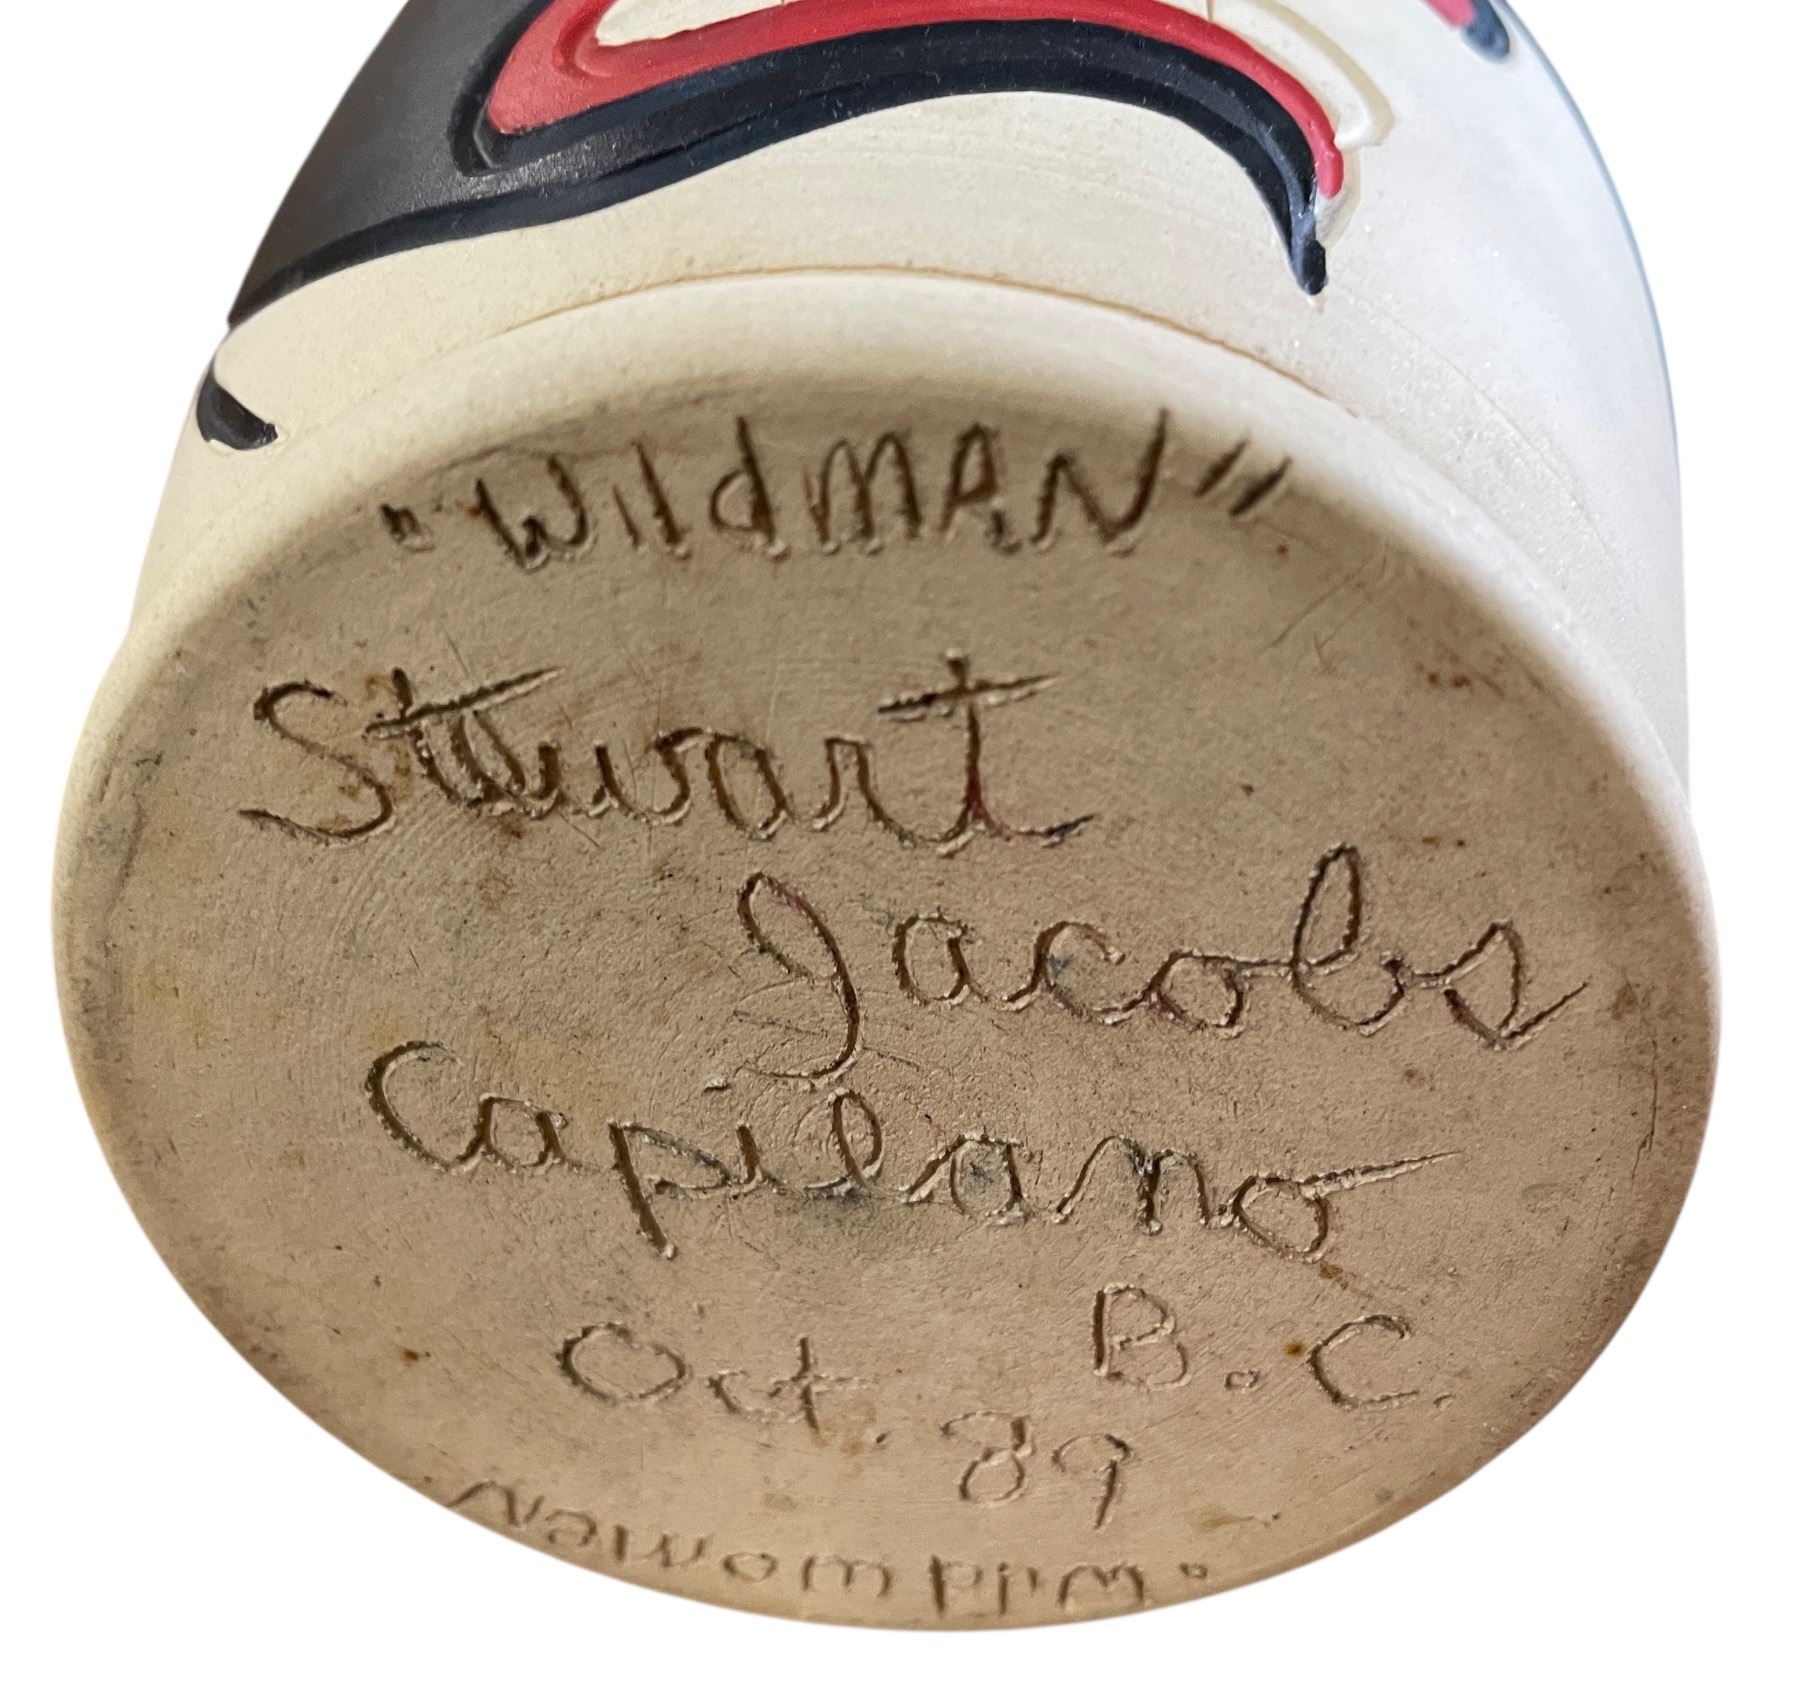 "WildMAN"
Stewart
Jacobs
Capilano
B.C.
Oct. 89
Wild women